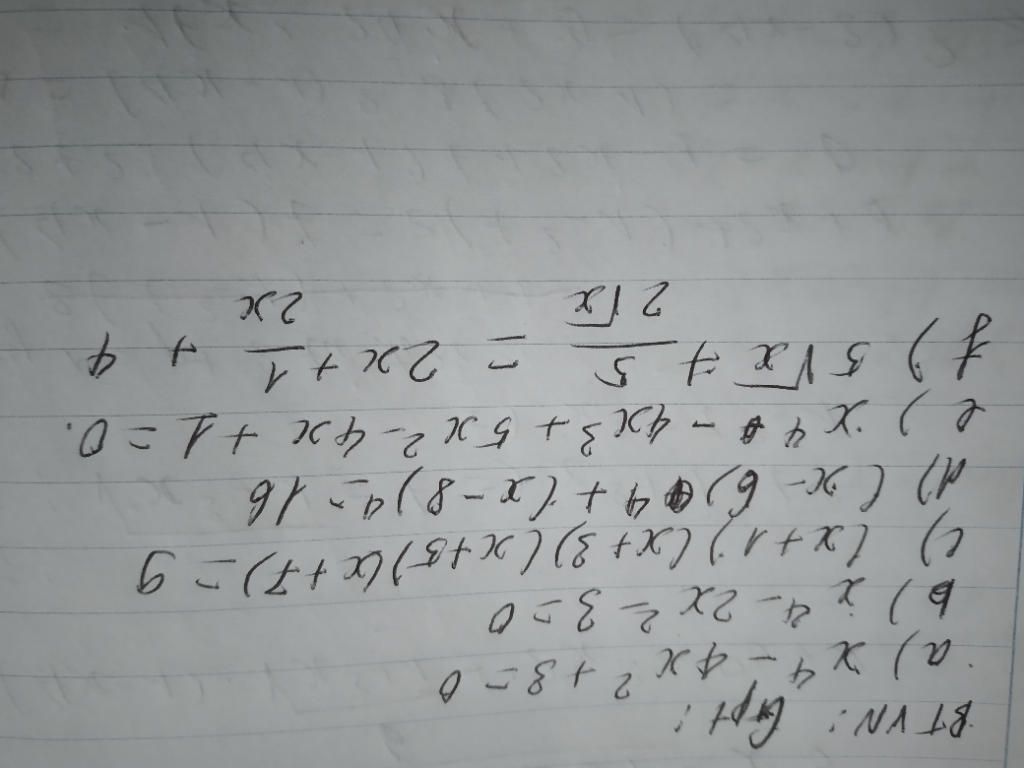 BTVN: Gpt:
a) x⁴ - 4x² + 3 = 0
b) x⁴ - 2x² - 3 = 0
c) (x+1)(x+3)(x+5)(x+7) = 9
d) (x-6)⁴ + (x-8)⁴ = 16
e) x⁴ - 4x³ + 5x² - 4x + 1 = 0.
f) 5√x + 5/(2√x) = 2x + 1/(2x) + 4